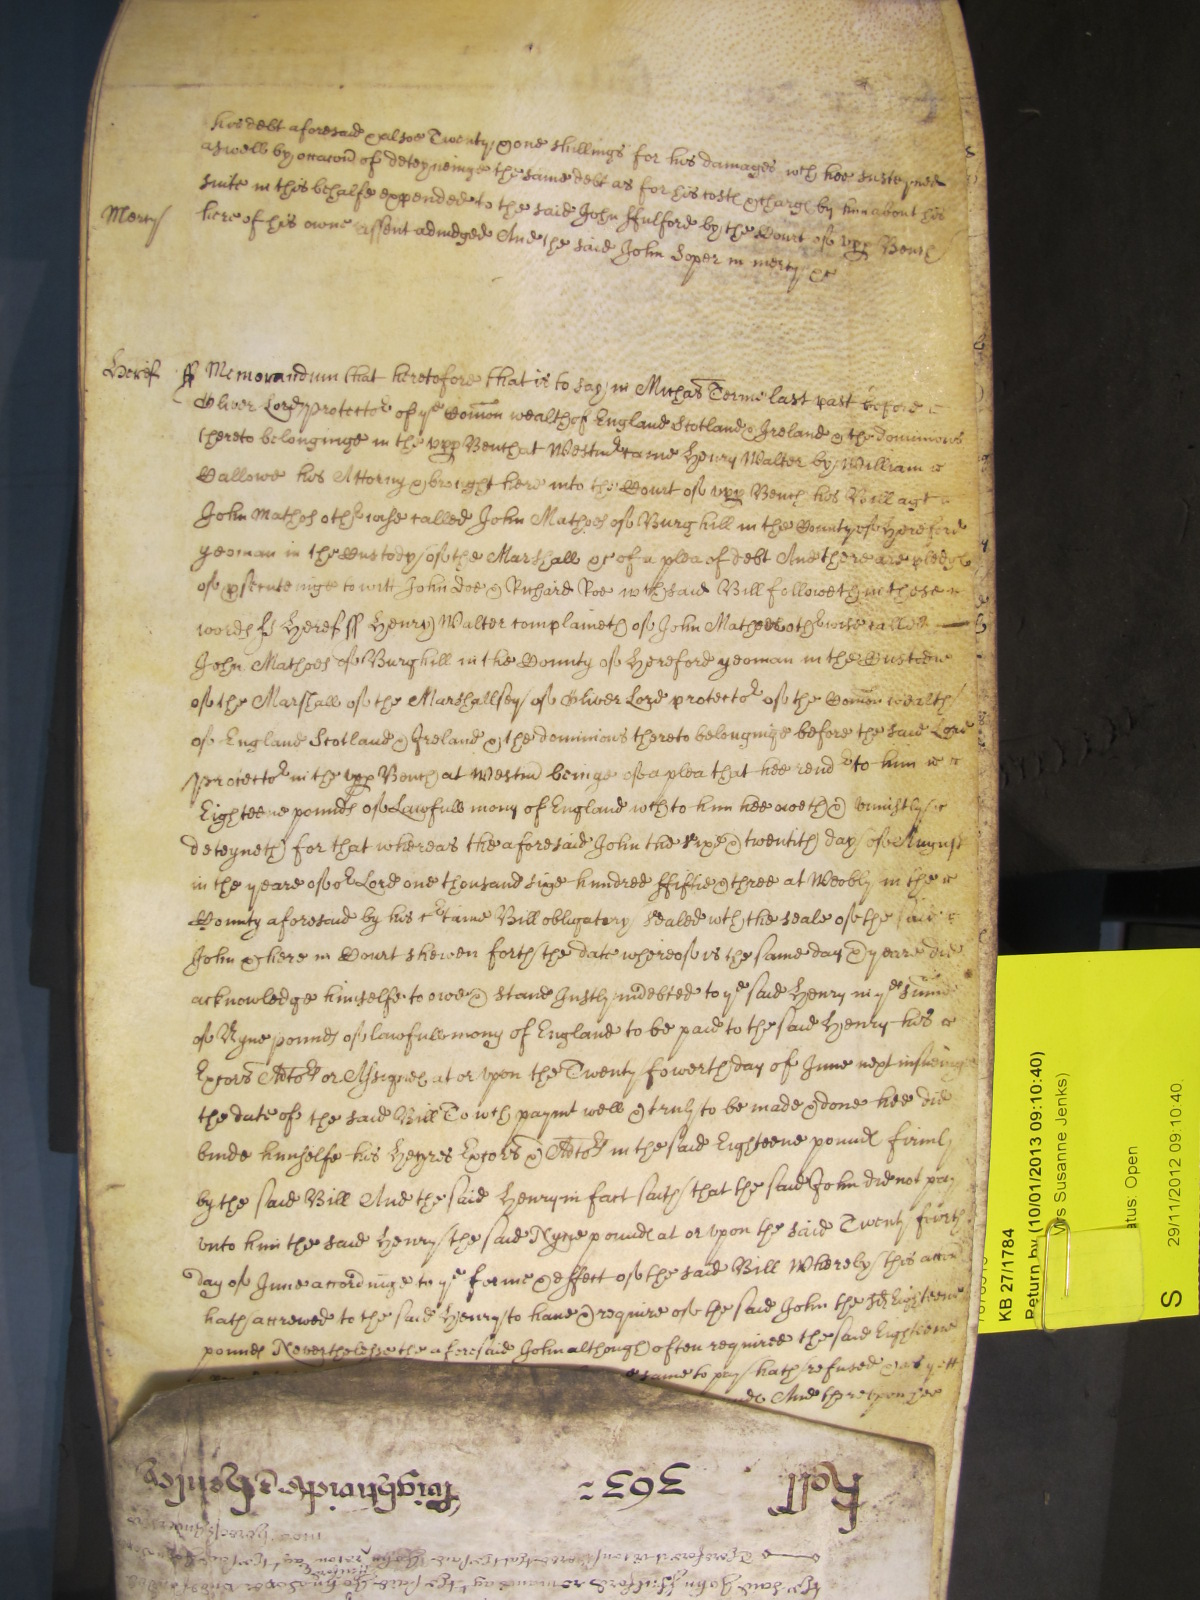 his debt aforesaid & alsoe Twenty & one shillings for his damages wch hee susteyned
aswell by occacon of deteyneinge the same debt as for his costs & charges by him about his
suite in this behalfe expended to the said John Fulford by the Court of upp Bench
Mercy here of his owne assent adiudged And the said John Soper in mercy &c
Heref ss Memorandum that heretofore that is to say in Michas Terme last past before
Oliver Lord Protector of ye Comon wealth of England Scotland & Ireland & the dominions
thereto belonginge in the upp Bench at Westmr came Henry Walter by William
Gallowe his Attorny & brought here into the Court of upp Bench his Bill agt
John Mathos othrwise called John Mathoes of Burghill in the County of Hereford
yeoman in the Custody of the Marshall &c of a plea of debt And there are pledges
of psecuteinge to witt John Doe & Richard Roe wch said Bill followeth in these
words ss Heref ss Henry Walter complaineth of John Mathoes othrwise called
John Mathoes of Burghill in the County of Hereford yeoman in the Custody
of the Marshall of the Marshallsey of Oliver Lord protector of the Comon wealth
of England Scotland & Ireland & the dominions thereto belonginge before the said Lord
Protector in the upp Bench at Westmr beinge of a plea that hee rendr to him
Eighteene pounds of Lawfull mony of England wch to him hee oweth & uniustly
deteyneth for that whereas the aforesaid John the sixe & twentith day of August
in the yeare of or Lord one thousand sixe hundred fiftie & three at Weobly in the
County aforesaid by his crtaine Bill obligatory sealed wth the seale of the said
John & here in Court shewen forth the date whereof is the same day & yeare did
acknowledge himselfe to owe & stand Justly indebted to ye said Henry in ye summe
of Nyne pounds of lawfull mony of England to be paid to the said Henry his
Exors Adtors or Assignes at or upon the Twenty fowerth day of June next insueinge
the date of the said Bill To wch paymt well & truly to be made & done hee did
binde himselfe his Heyres Exors & Adtors in the said Eighteene pounds firmly
by the said Bill And the said Henry in fact saith that the said John did not pay
unto him the said Henry the said Nyne pounds at or upon the said Twenty fourth
day of June accordinge to ye forme & effect of the said Bill Whereby this accon
hath accrewed to the said Henry to have & require of the said John the sd Eighteene
pounds Neverthelesse the aforesaid John although often required the said Eighteene
same to pay hath refused & as yett
And thereupon hee
Roll 363
KB 27/1784
Return by (10/01/2013 09:10:40)
Mrs Susanne Jenks)
atus: Open
29/11/2012 09:10:40
S